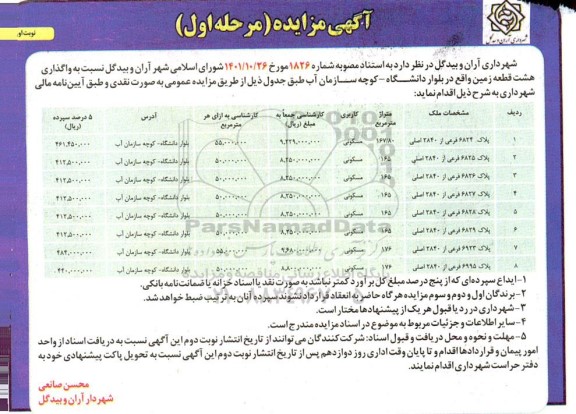 آگهی مزایده (مرحله اول)
نوبت اول
شهرداری آران و بیدگل
شهرداری آران و بیدگل در نظر دارد به استناد مصوبه شماره ۱۸۲۶ مورخ ۱۴۰۱/۱۰/۲۶ شورای اسلامی شهر آران و بیدگل نسبت به واگذاری
هشت قطعه زمین واقع در بلوار دانشگاه - کوچه سازمان آب طبق جدول ذیل از طریق مزایده عمومی به صورت نقدی و طبق آیین‌نامه مالی
شهرداری به شرح ذیل اقدام نماید:
ردیف مشخصات ملک متراژ مترمربع کاربری کارشناسی جمعاً به مبلغ (ریال) کارشناسی به ازای هر مترمربع آدرس ۵ درصد سپرده (ریال)
پلاک ۶۸۲۴ فرعی از ۲۸۴۰ اصلی ۱۶۷/۸۰ مسکونی ۹،۲۲۹،۰۰۰،۰۰۰ ۵۵،۰۰۰،۰۰۰ بلوار دانشگاه- کوچه سازمان آب ۴۶۱،۴۵۰،۰۰۰
۲ پلاک ۶۸۲۵ فرعی از ۲۸۴۰ اصلی ۱۶۵ مسکونی ۸،۲۵۰،۰۰۰،۰۰۰ ۵۰،۰۰۰،۰۰۰ بلوار دانشگاه- کوچه سازمان آب ۴۱۲،۵۰۰،۰۰۰
۳ پلاک ۶۸۲۶ فرعی از ۲۸۴۰ اصلی ۱۶۵ مسکونی ۸،۲۵۰،۰۰۰،۰۰۰ ۵۰،۰۰۰،۰۰۰ بلوار دانشگاه- کوچه سازمان آب ۴۱۲،۵۰۰،۰۰۰
۴ پلاک ۶۸۲۷ فرعی از ۲۸۴۰ اصلی ۱۶۵ مسکونی ۸،۲۵۰،۰۰۰،۰۰۰ ۵۰،۰۰۰،۰۰۰ بلوار دانشگاه- کوچه سازمان آب ۴۱۲،۵۰۰،۰۰۰
۵ پلاک ۶۸۲۸ فرعی از ۲۸۴۰ اصلی ۱۶۵ مسکونی ۸،۲۵۰،۰۰۰،۰۰۰ ۵۰،۰۰۰،۰۰۰ بلوار دانشگاه- کوچه سازمان آب ۴۱۲،۵۰۰،۰۰۰
۶ پلاک ۶۸۲۹ فرعی از ۲۸۴۰ اصلی ۱۶۵ مسکونی ۸،۲۵۰،۰۰۰،۰۰۰ ۵۰،۰۰۰،۰۰۰ بلوار دانشگاه- کوچه سازمان آب ۴۱۲،۵۰۰،۰۰۰
۷ پلاک ۶۹۲۳ فرعی از ۲۸۴۰ اصلی ۱۷۶ مسکونی بلوار دانشگاه- کوچه سازمان آب ۴۸۴،۰۰۰،۰۰۰
۸ پلاک ۶۹۹۵ فرعی از ۲۸۴۰ اصلی ۱۷۶ مسکونی بلوار دانشگاه- کوچه سازمان آب ۴۴۰،۰۰۰،۰۰۰
ParsNamadData
پایگاه اطلاع رسانی مناقصه و مزایده
۱- ایداع سپرده‌ای که از پنج درصد مبلغ کل برآورد کمتر نباشد به صورت نقد یا اسناد خزانه یا ضمانت‌نامه بانکی.
۲- برندگان اول و دوم و سوم مزایده هرگاه حاضر به انعقاد قرارداد نشوند سپرده آنان به ترتیب ضبط خواهد شد.
۳- شهرداری در رد یا قبول هر یک از پیشنهادها مختار است.
۴- سایر اطلاعات و جزئیات مربوط به موضوع در اسناد مزایده مندرج است.
۵- مهلت و نحوه و محل دریافت و قبول اسناد: شرکت کنندگان می‌توانند از تاریخ انتشار نوبت دوم این آگهی نسبت به دریافت اسناد از واحد
امور پیمان و قراردادها اقدام و تا پایان وقت اداری روز دوازدهم پس از تاریخ انتشار نوبت دوم این آگهی نسبت به تحویل پاکت پیشنهادی خود به
دفتر حراست شهرداری اقدام نمایند.
محسن صانعی
شهردار آران و بیدگل